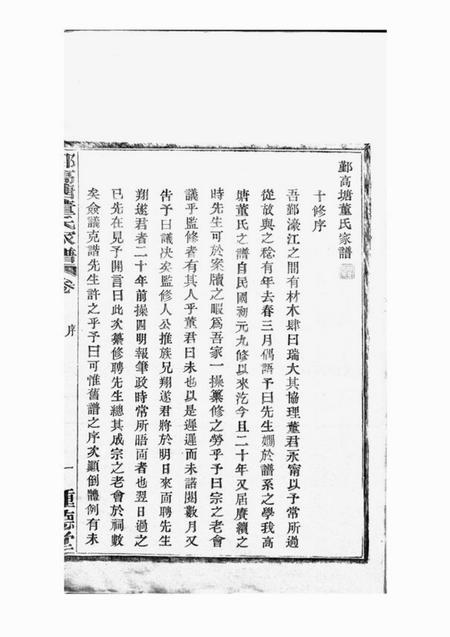 鄞高塘董氏家譜
十修序
吾鄞濠江之間有材木肆曰瑞大其協理董君永甯以予常所過
從故與之稔有年去春三月偶語予曰先生嫺於譜系之學我高
塘董氏之譜自民國初元九修以來迄今且二十年又居賡續之
時先生可於案牘之暇爲吾家一操纂修之勞乎予曰宗之老會
議乎監修者有其人乎君曰未也以是遲遲而未諾閱數月又
告予曰議决矣監修人公推族兄翔遂君將於明日來面聘先生
翔遂君者二十年前操四明報筆政時常所晤面者也翌日過之
已先在見予開言曰此次纂修聘先生總其成宗之老會於祠數
矣僉議克諧先生許之乎予曰可惟舊譜之序次顚倒體例有未
鄞高塘董氏家譜
卷
序
一
種德堂